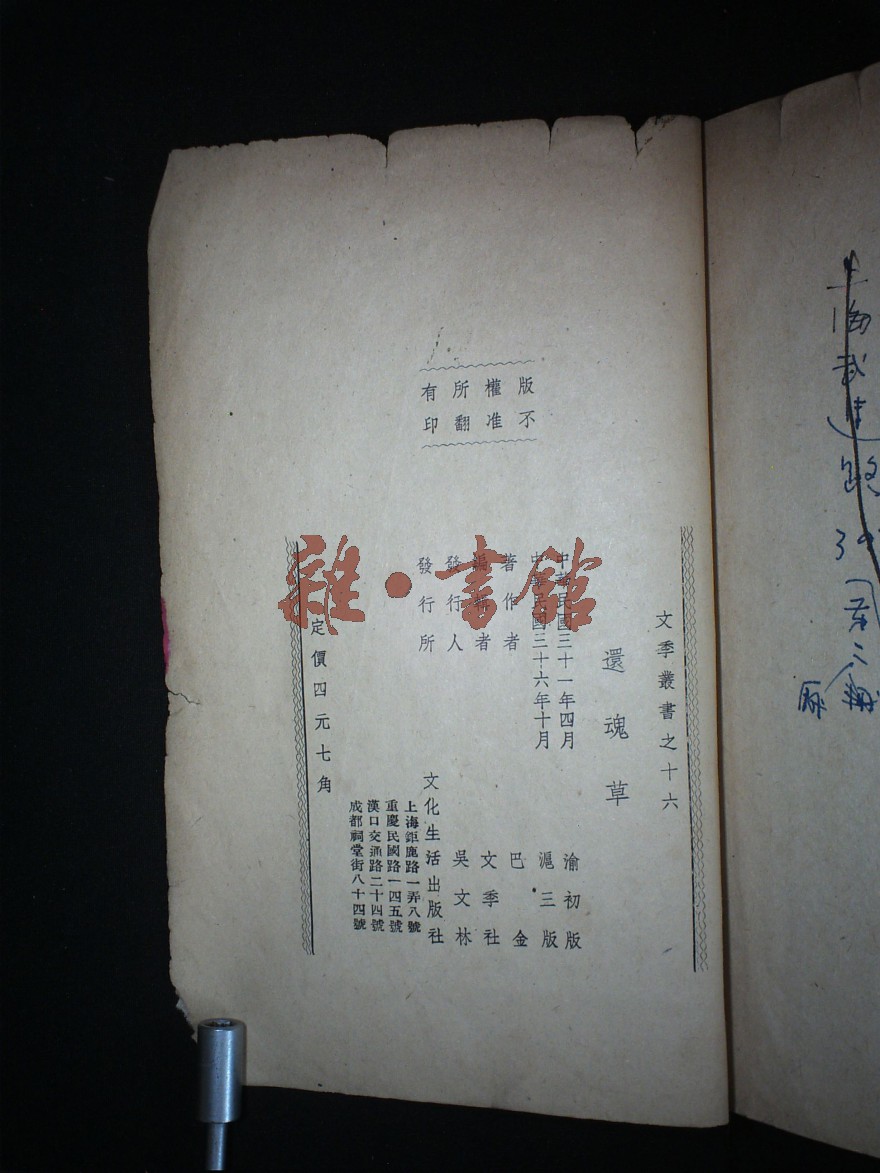 版權所有
不准翻印
文季叢書之十六
還魂草
中華民國三十一年四月 渝初版
中華民國三十六年十月 滬三版
著作者 巴金
編輯者 文季社
發行人 吳文林
發行所 文化生活出版社
上海鉅鹿路一弄八號
重慶民國路一四五號
漢口交通路二十四號
成都祠堂街八十四號
定價四元七角
雜·書館
上海武進路